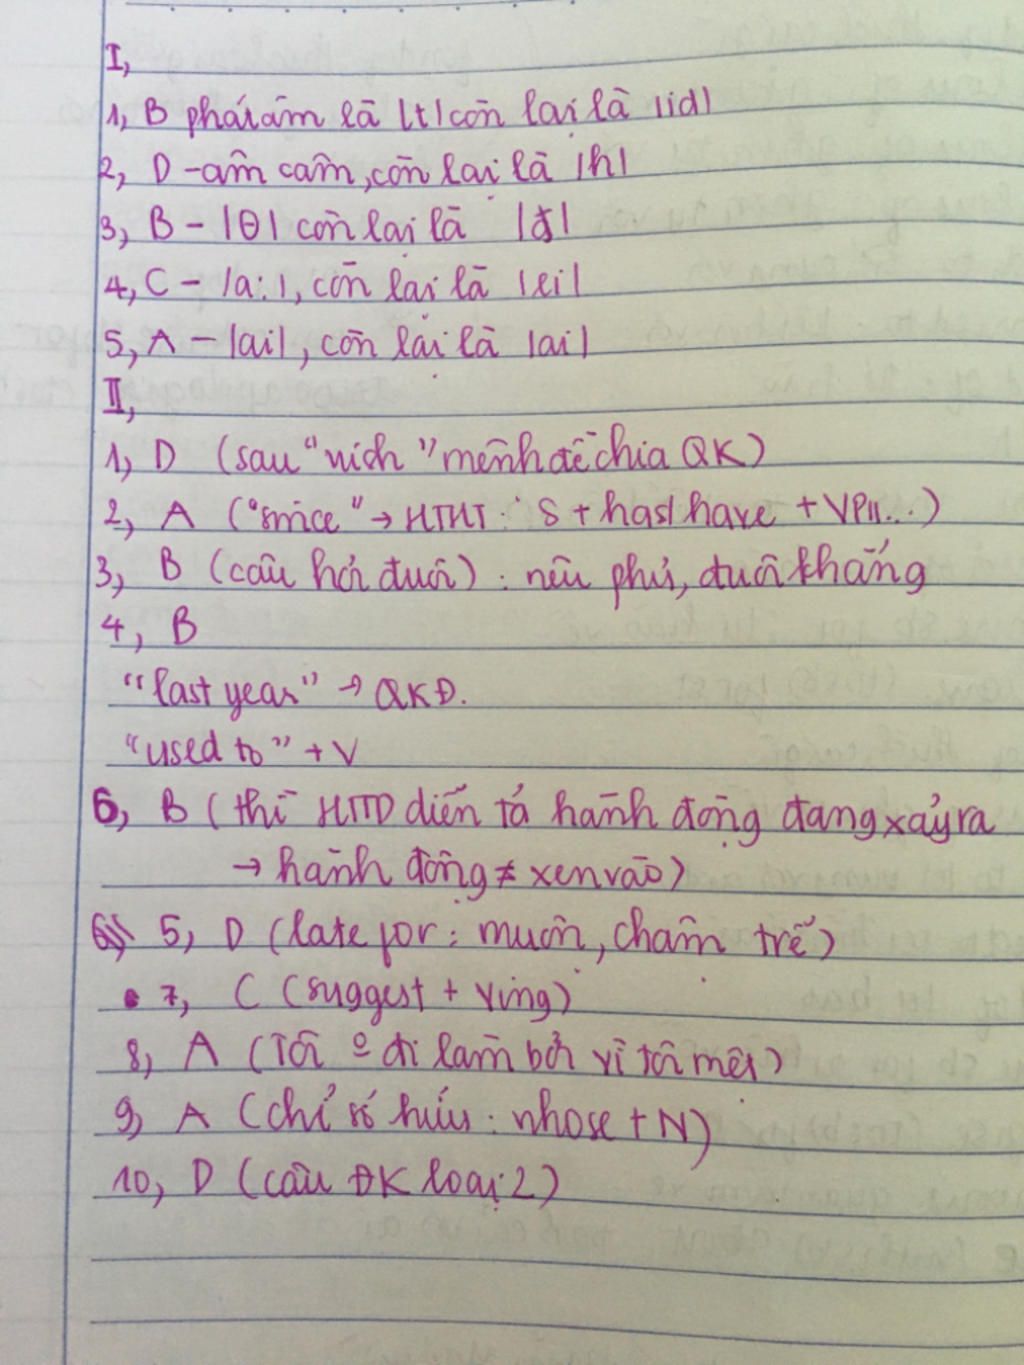 I,
1, B phát âm là |t| còn lại là |id|
2, D - âm câm, còn lại là |h|
3, B - |θ| còn lại là |ð|
4, C - |a:|, còn lại là |ei|
5, A - |ai|, còn lại là |ai|
II,
1, D (sau "wish" mệnh đề chia QK)
2, A ("since" → HTHT: S + has/have + VPII...)
3, B (câu hỏi đuôi): nêu phủ, đuôi khẳng
4, B
"last year" → QKĐ.
"used to" + V
6, B (thì HTTD diễn tả hành động đang xảy ra
→ hành động ≠ xen vào)
5, D (late for: muộn, chậm trễ)
7, C (suggest + Ving)
8, A (Tôi o đi làm bởi vì tôi mệt)
9, A (chỉ sở hữu: whose + N)
10, D (câu ĐK loại 2)